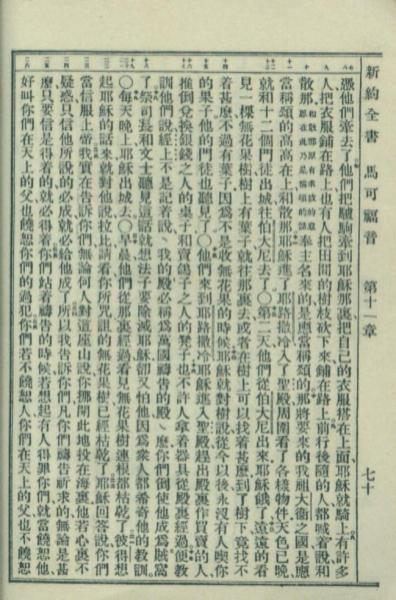 新約全書 馬可福音 第十一章 七十
憑他們牽去了他們把驢駒牽到耶穌那裏把自己的衣服搭在上面耶穌就騎上有許多
人把衣服鋪在路上也有人把田間的樹枝砍下來鋪在路上前行後隨的人都喊着說和
散那和散那原有求救的意思在此乃是稱頌的話奉主名來的是應當稱頌的那將要來的我祖大衛之國是應
當稱頌的高高在上和散那耶穌進了耶路撒冷入了聖殿周圍看了各樣物件天色已晚
就和十二個門徒出城往伯大尼去了〇第二天他們從伯大尼出來耶穌餓了遠遠的看
見一棵無花果樹樹上有葉子就往那裏去或者在樹上可以找着甚麽到了樹下竟找不
着甚麽不過有葉子因爲不是收無花果的時候耶穌就對樹說從今以後永沒有人喫你
的果子他的門徒也聽見了〇他們來到耶路撒冷耶穌進入聖殿趕出殿裏作買賣的人
推倒兌換銀錢之人的桌子和賣鴿子之人的凳子也不許人拿着器具從殿裏經過便教
訓他們說經上不是記着說、我的殿必稱爲萬國禱告的殿麽你們倒使他成爲賊窩
了祭司長和文士聽見這話就想法子要除滅耶穌卻又怕他因爲衆人都希奇他的教訓
〇每天晚上耶穌出城去〇早晨他們從那裏經過看見無花果樹連根都枯乾了彼得想
起耶穌的話來就對他說拉比請看你所咒詛的無花果樹已經枯乾了耶穌回答說你們
當信服上帝我實在告訴你們無論何人對這座山說你挪開此地投在海裏他若心裏不
疑惑只信他所說的必成就必給他成了所以我告訴你們凡你們禱告祈求的無論是甚
麽只要信是得着的就必得着你們站着禱告的時候若想起有人得罪你們就當饒恕他
好叫你們在天上的父也饒恕你們的過犯你們若不饒恕人你們在天上的父也不饒恕